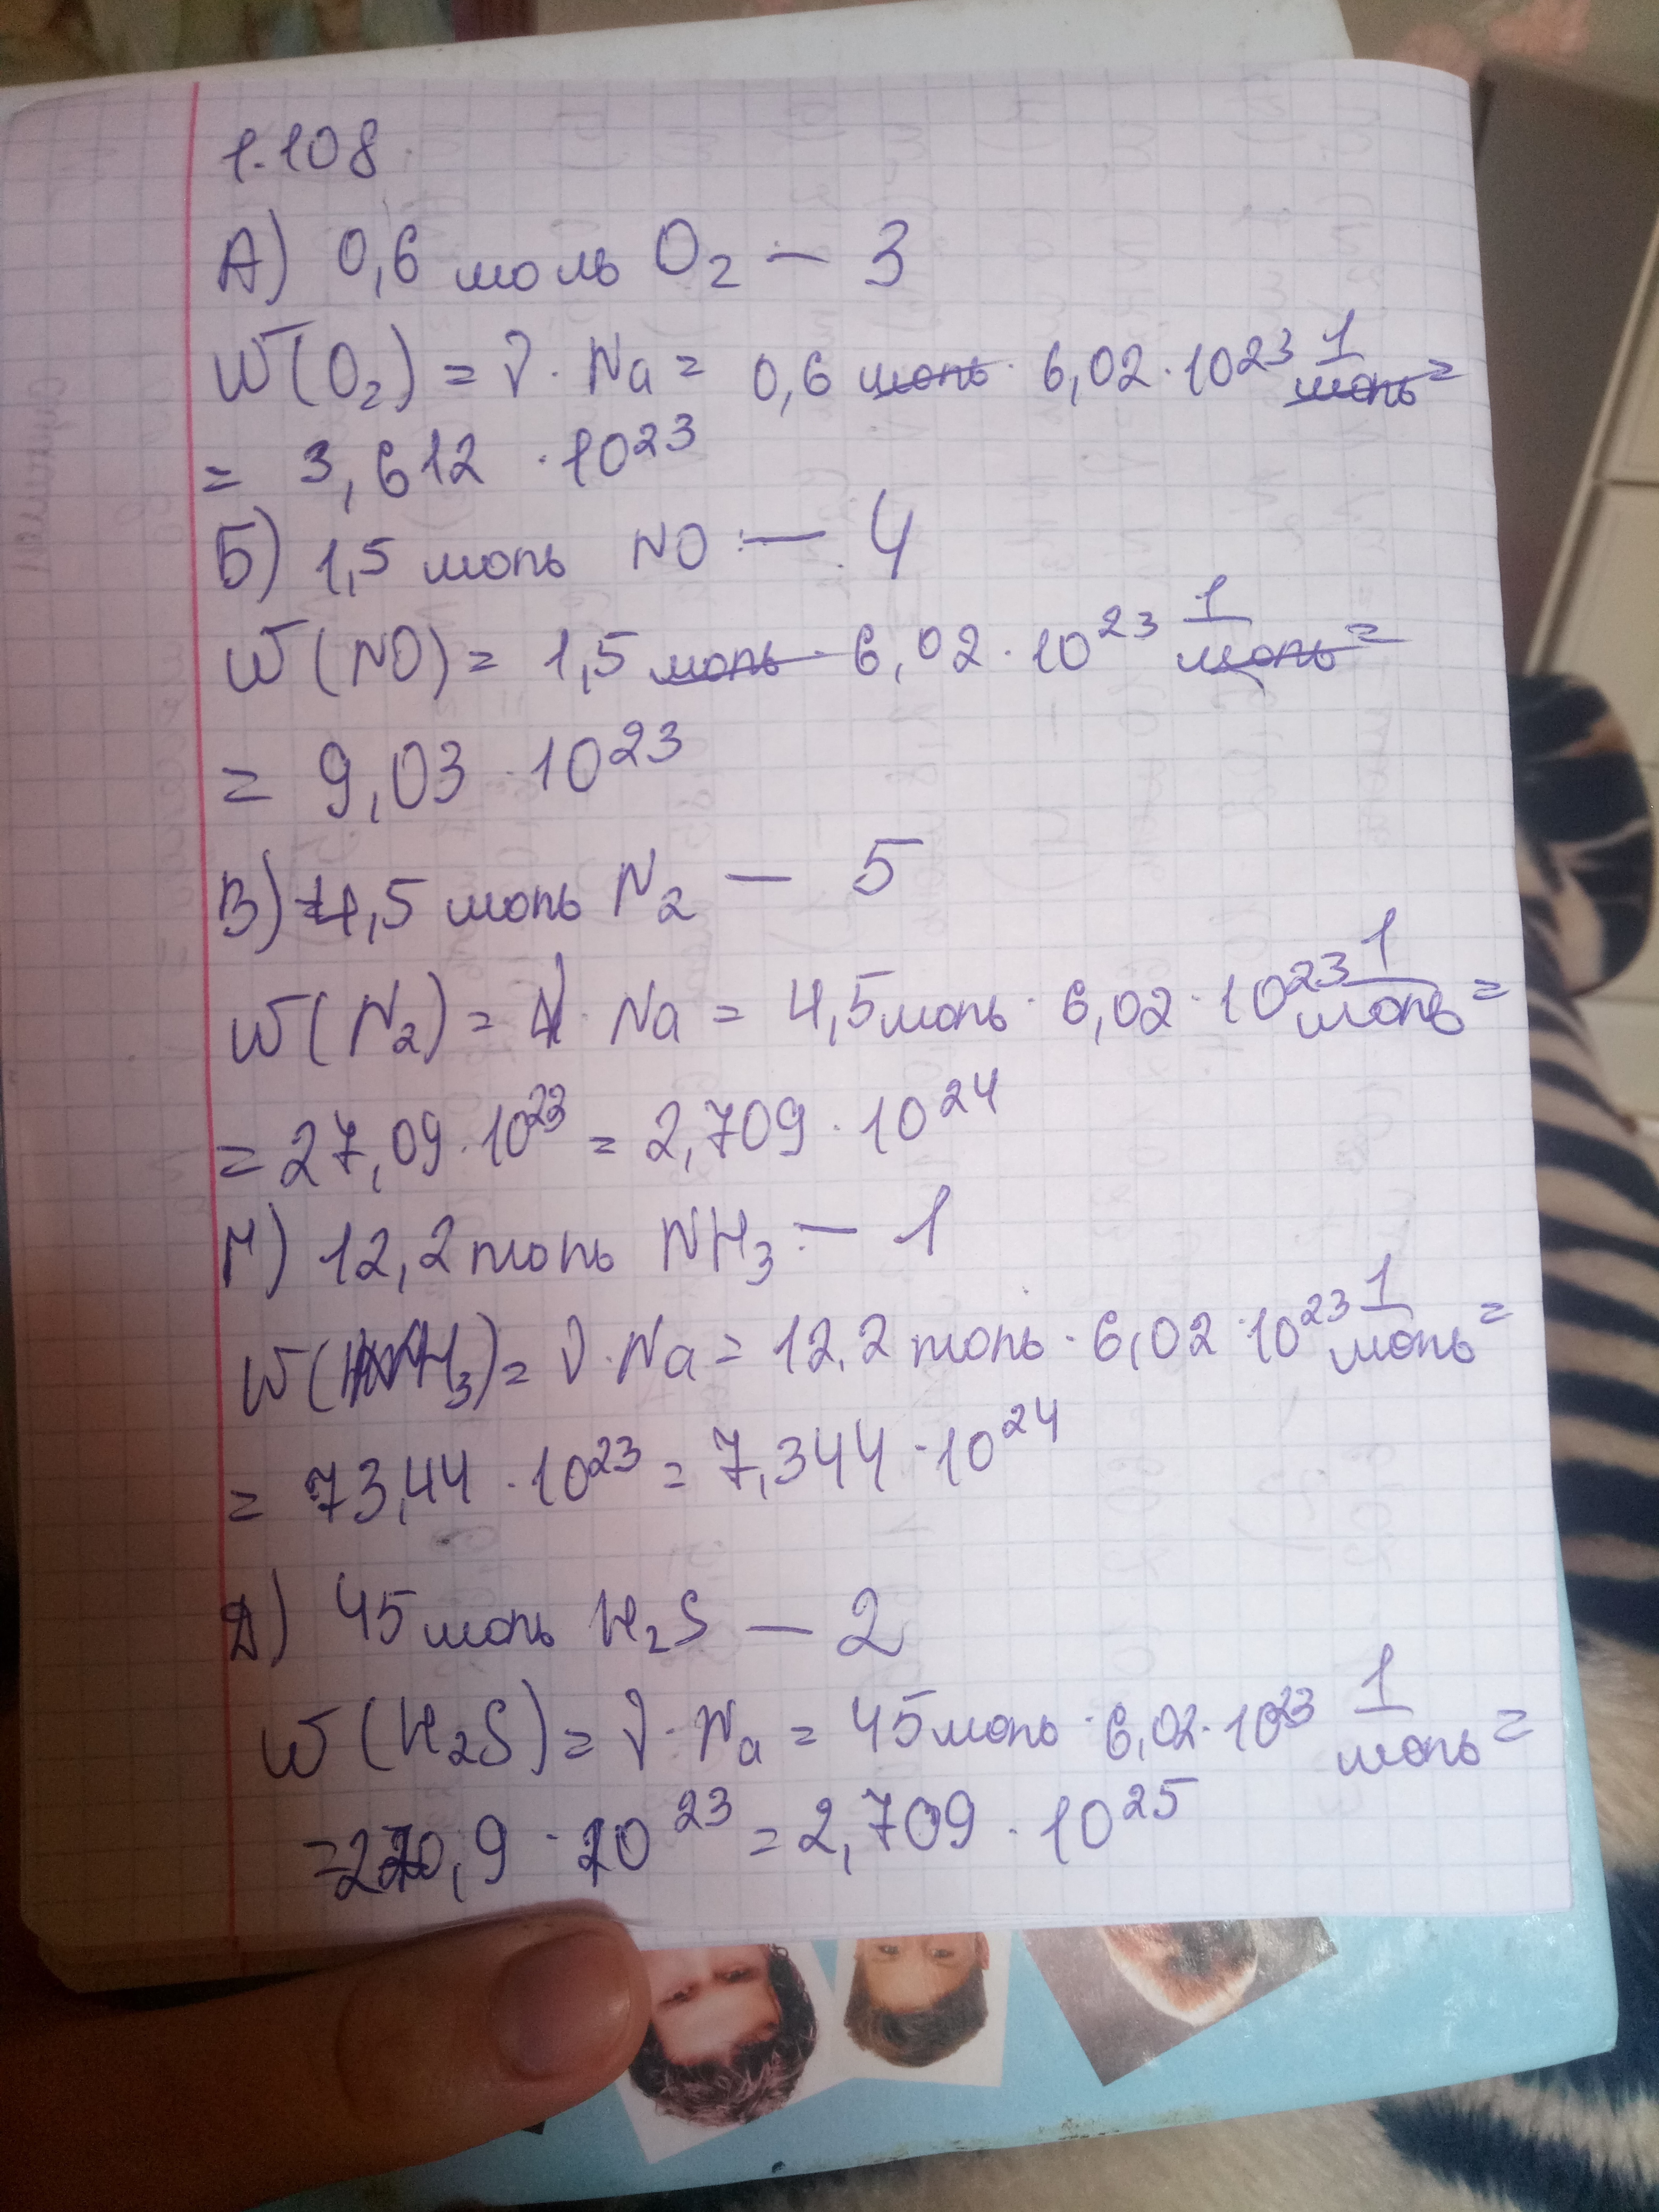 1.108
А) 0,6 моль O₂ — 3
N(O₂) = ν · Na = 0,6 моль · 6,02 · 10²³ 1/моль =
= 3,612 · 10²³
Б) 1,5 моль NO — 4
N(NO) = 1,5 моль · 6,02 · 10²³ 1/моль =
= 9,03 · 10²³
В) 4,5 моль N₂ — 5
N(N₂) = ν · Na = 4,5 моль · 6,02 · 10²³ 1/моль =
= 27,09 · 10²³ = 2,709 · 10²⁴
Г) 12,2 моль NH₃ — 1
N(NH₃) = ν · Na = 12,2 моль · 6,02 · 10²³ 1/моль =
= 73,44 · 10²³ = 7,344 · 10²⁴
Д) 45 моль H₂S — 2
N(H₂S) = ν · Na = 45 моль · 6,02 · 10²³ 1/моль =
= 270,9 · 10²³ = 2,709 · 10²⁵